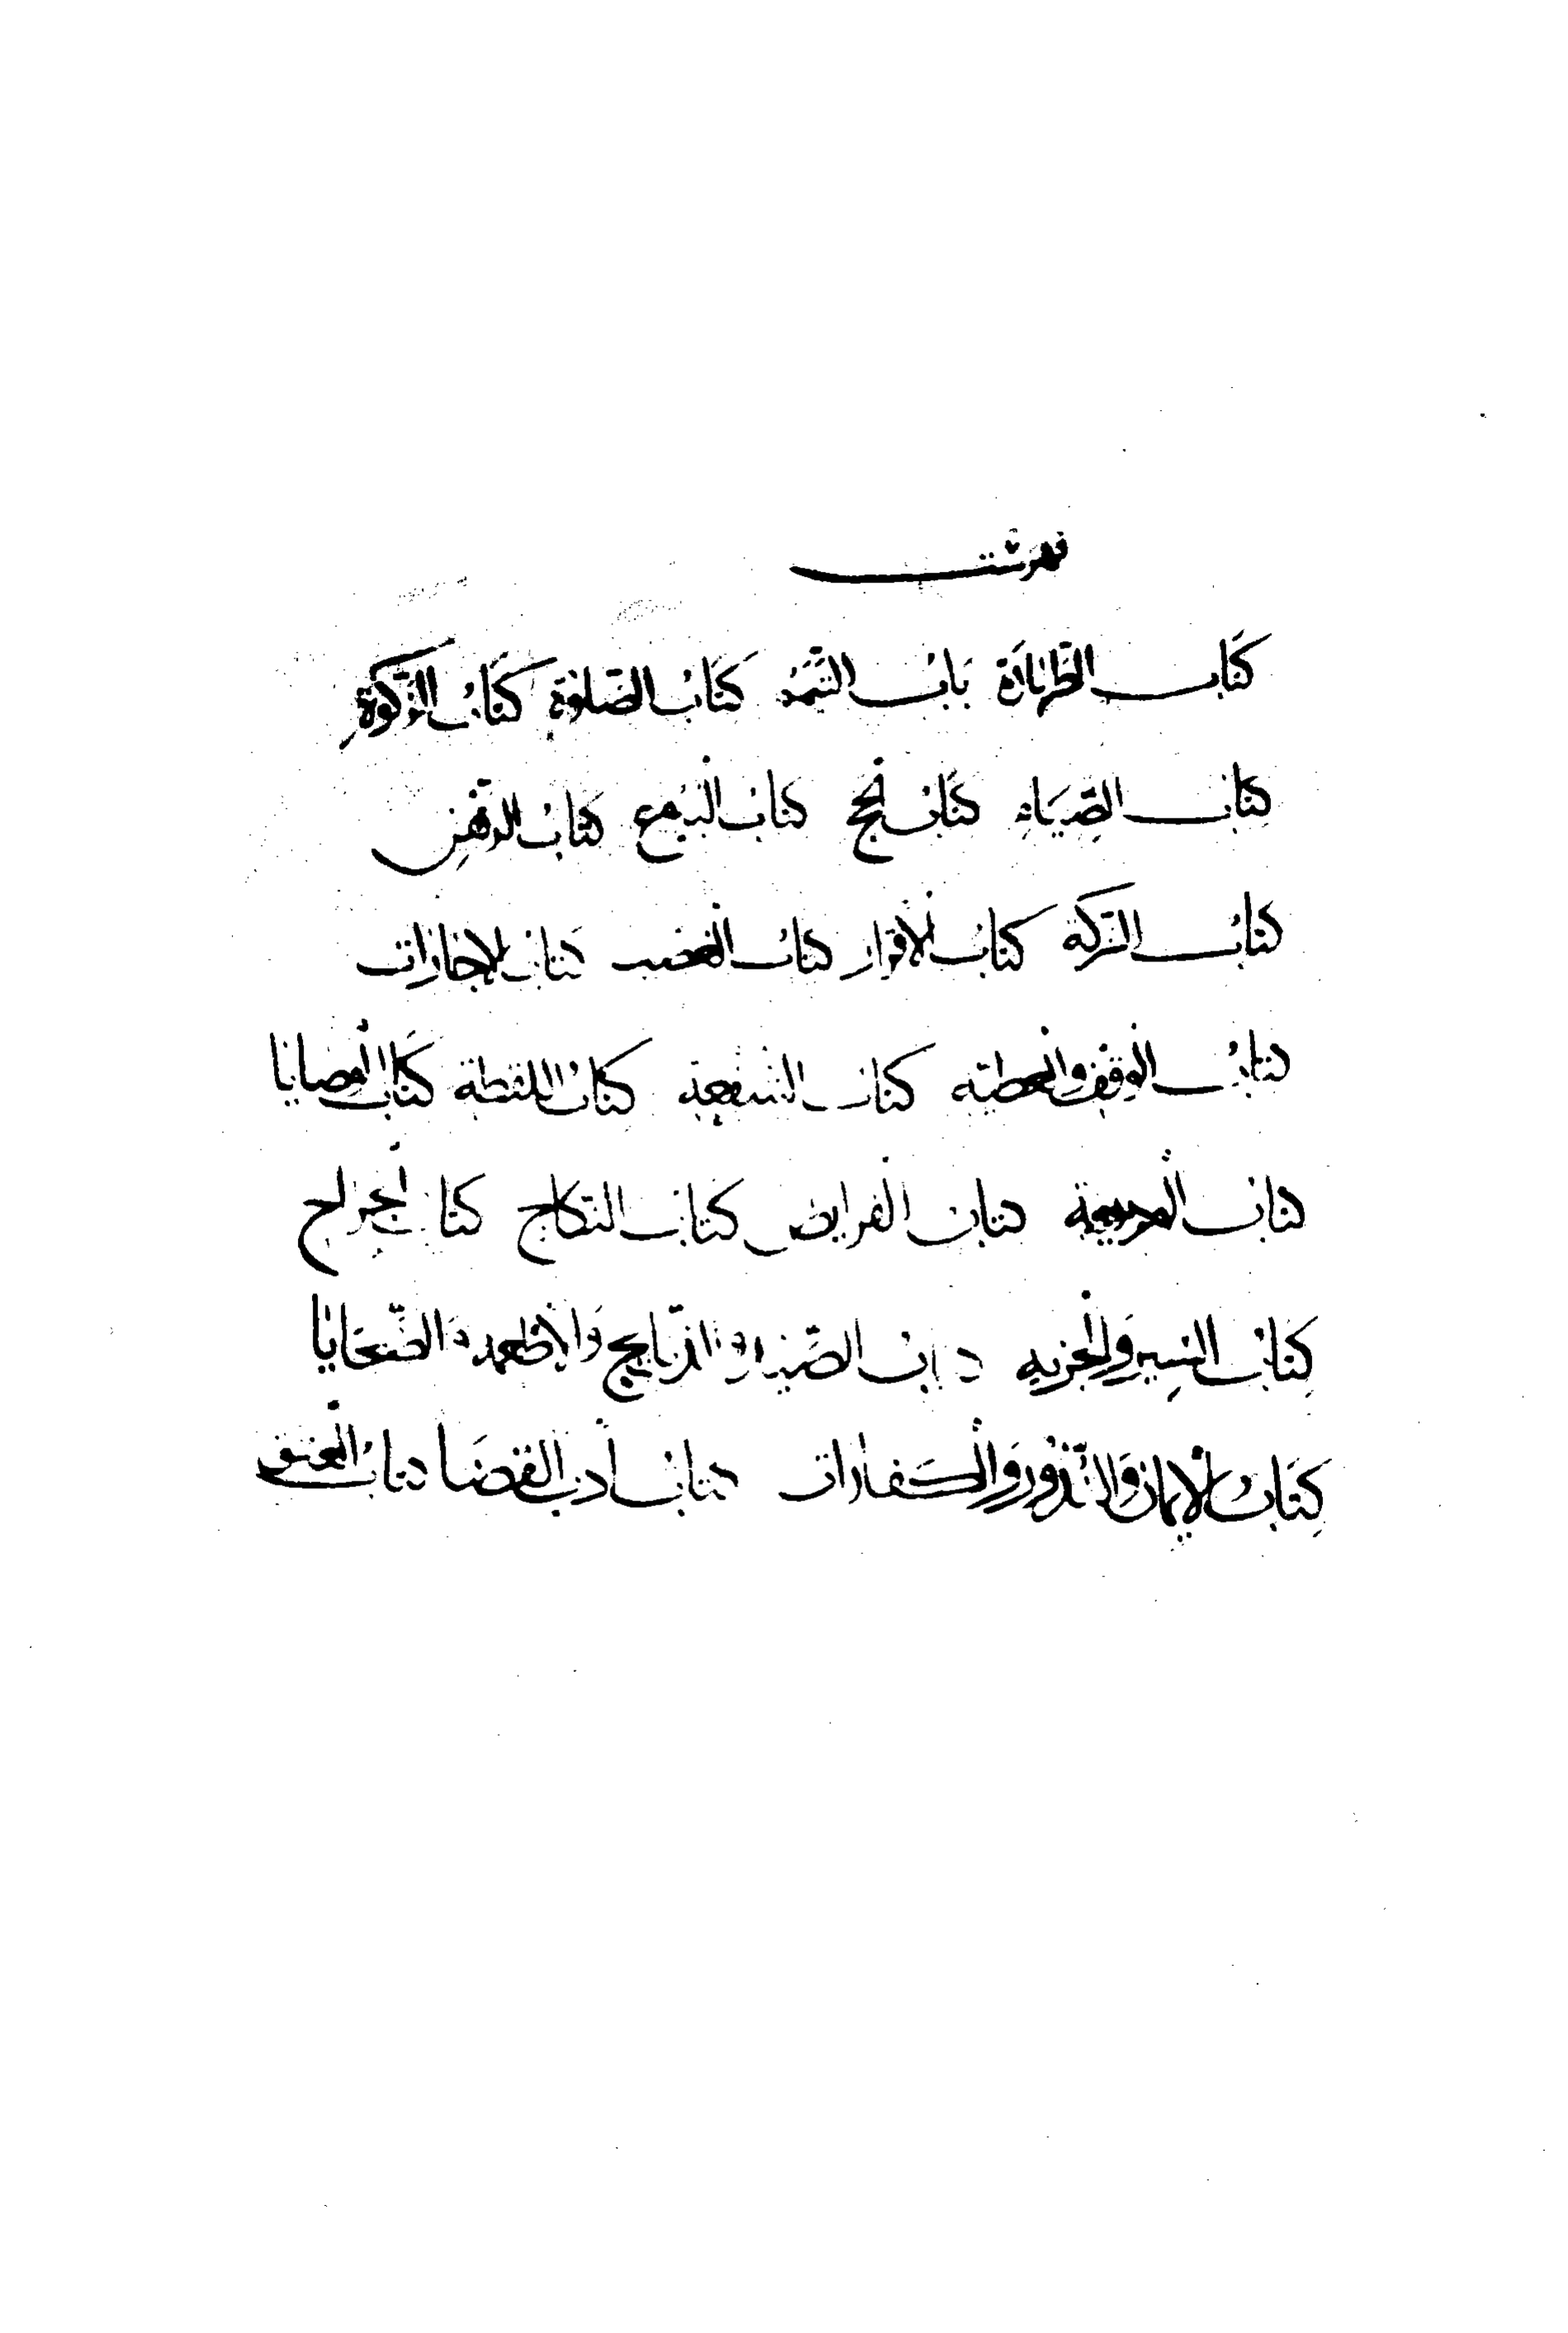 فهرست
كتاب الطهارة باب التيمم كتاب الصلوة كتاب الزكوة
كتاب الصيام كتاب الحج كتاب البيوع كتاب الرهن
كتاب الشركة كتاب الاقرار كتاب الغصب كتاب الاجارات
كتاب الوقف والعطية كتاب الشفعة كتاب اللقطة كتاب الوصايا
كتاب الوديعة كتاب الفرايض كتاب النكاح كتاب الجراح
كتاب السير والجزيه كتاب الصيد والذبايح والاطعمة والضحايا
كتاب الايمان والنذور والكفارات كتاب ادب القضا كتاب العتق